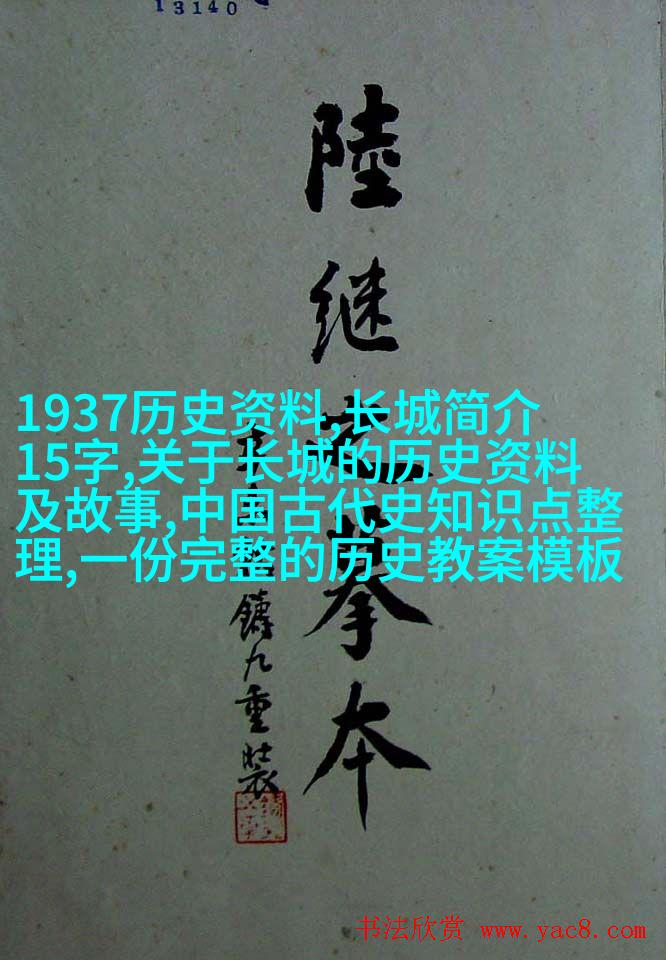 13140
陸继摹本
鑄九重裝
1937历史资料,长城简介
15字,关于长城的历史资料
及故事,中国古代史知识点整
理,一份完整的历史教案模板
书法欣赏 www.yac8.com